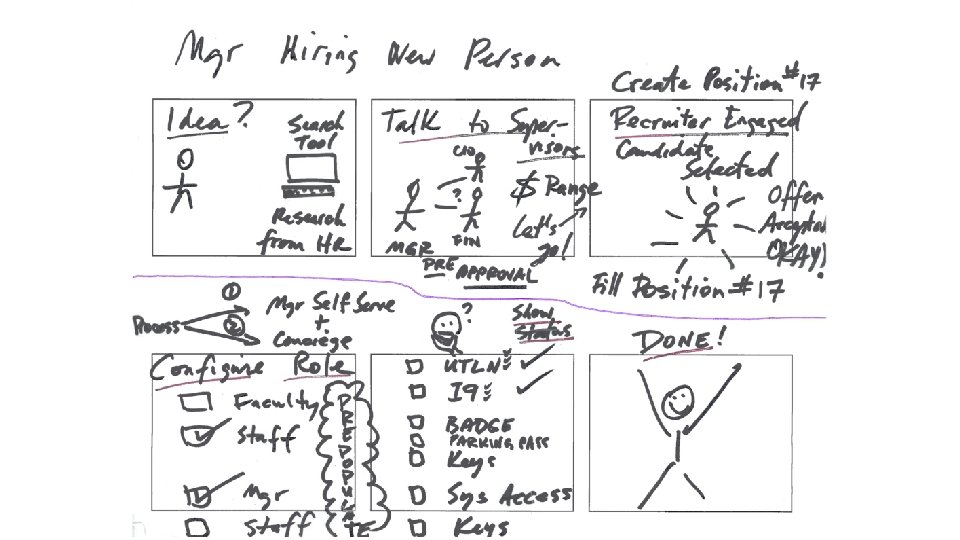 Mgr Hiring New Person
Idea?
Search
Tool
Research
from HR
Talk to Super-
visors
CIO
?
$ Range
Let's
go!
MGR
FIN
PRE APPROVAL
Create Position #17
Recruiter Engaged
Candidate
Selected
Offer
Accepted
OKAY!
Fill Position #17
Process
1
2
Mgr Self Serve
+
Concierge
Configure Role
Faculty
Staff
Mgr
Staff
PREPOPULATE
?
Show
Status
UTLN
I9
BADGE
PARKING PASS
Keys
Sys Access
Keys
DONE!